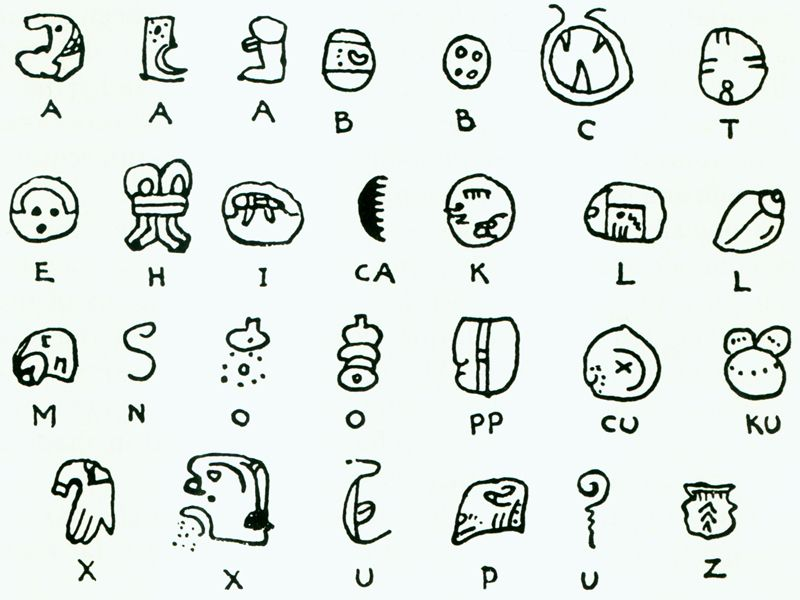 A A A B B C T
E H I CA K L L
M N O O PP CU KU
X X U P U Z